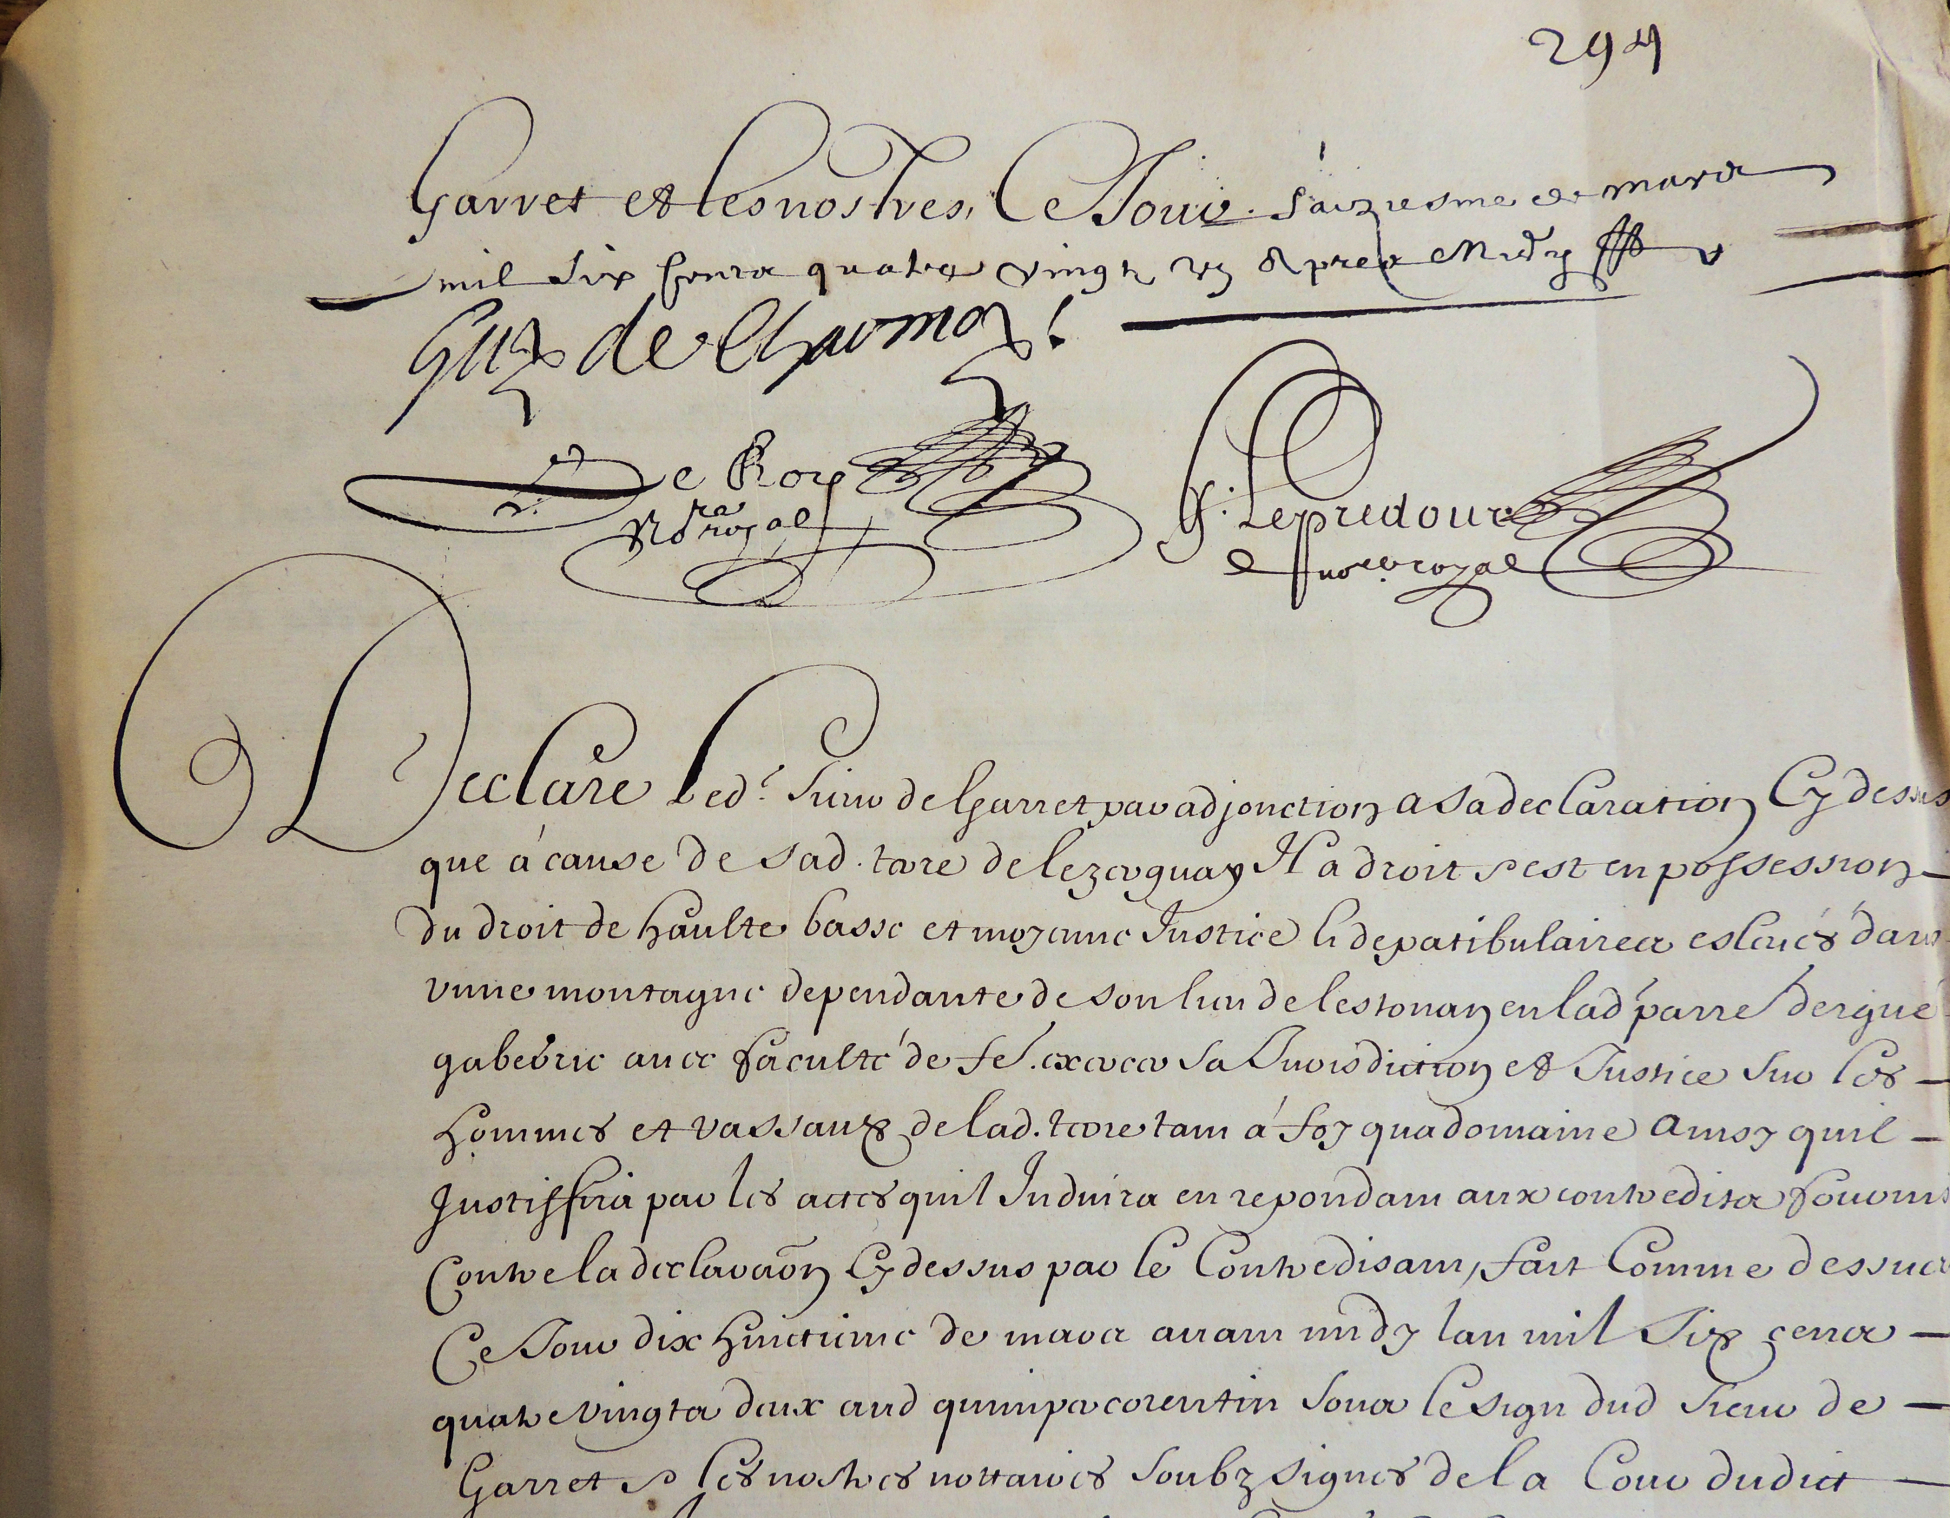 294
Garret et les nostres, Ce Jour saiziesme de mars
mil Six Cents quatre vingt un apres Midy
Guy de Charmoy
Le Roy
Nore royal
G: Lepredour
nore royal
Declare Led. Sieur de Garret par adjonction a sa declaration Cy dessus
que á cause de sad. terre de lezerguay Il a droit & est en possession
du droit de haulte basse et moyenne Justice & de patibulaires eslevés dans
vnne montagne dependante de son lieu de lestonan en lad parre dergué
gaberic avec faculté de fe. exercer sa Juridiction et Justice sur les
hommes et vassaux de lad. terre tant á foy qua domaine ainsy quil
Justiffira par les actes quil Induira en repondant aux contredits fournis
Contre la declaraon Cy dessus par le Contredisant, fait Comme dessus
Ce Jour dix huictieme de mars avant midy lan mil Six cents
quatre vingts deux aud quimpercorentin soux le sign dud sieur de
Garret & les nostres nottaires soubz signés de la Cour dudict